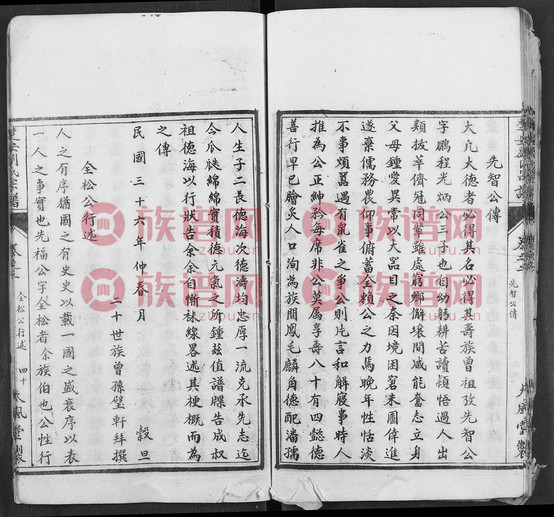 先智公傳
大凢大德者必得其名必得其壽族曾祖孜先智公
字鵬程光炳公三子也自幼躬耕苦讀頴悟過人出
類拔萃儕冠同羣雖處窮鄉僻壤間咸能奮志立身
父母鍾愛異常以大器目之奈因境困畧未圖俾進
遂業儒務農仰事俯蓄全賴公之力焉晚年性怙淡
不事煩囂遇有鼠雀之事公則片言和解嚴事時人
推為公正紳矜每席非公莫屬享壽八十有四懿德
善行早已膾炙人口洵為族間鳳毛麟角德配潘孺
人生子二長德海次德濤均忠厚一流克承先志迄
今瓜瓞綿綿寶積德元氣之所鍾茲值譜牒告成叔
祖德海以行狀告余余自慚袜線畧述其梗概而為
之傳
民國三十六年仲春月 穀旦
二十世族曾孫璧軒拜撰
全松公行述
人之有序猶國之有史史以載一國之盛衰序以表
一人之事實也先福公字全松者余族伯也公性行
先智公傳
大風堂製
劉氏宗譜
全松公行述
四十
大風堂製
族譜网
www.zupu.cn